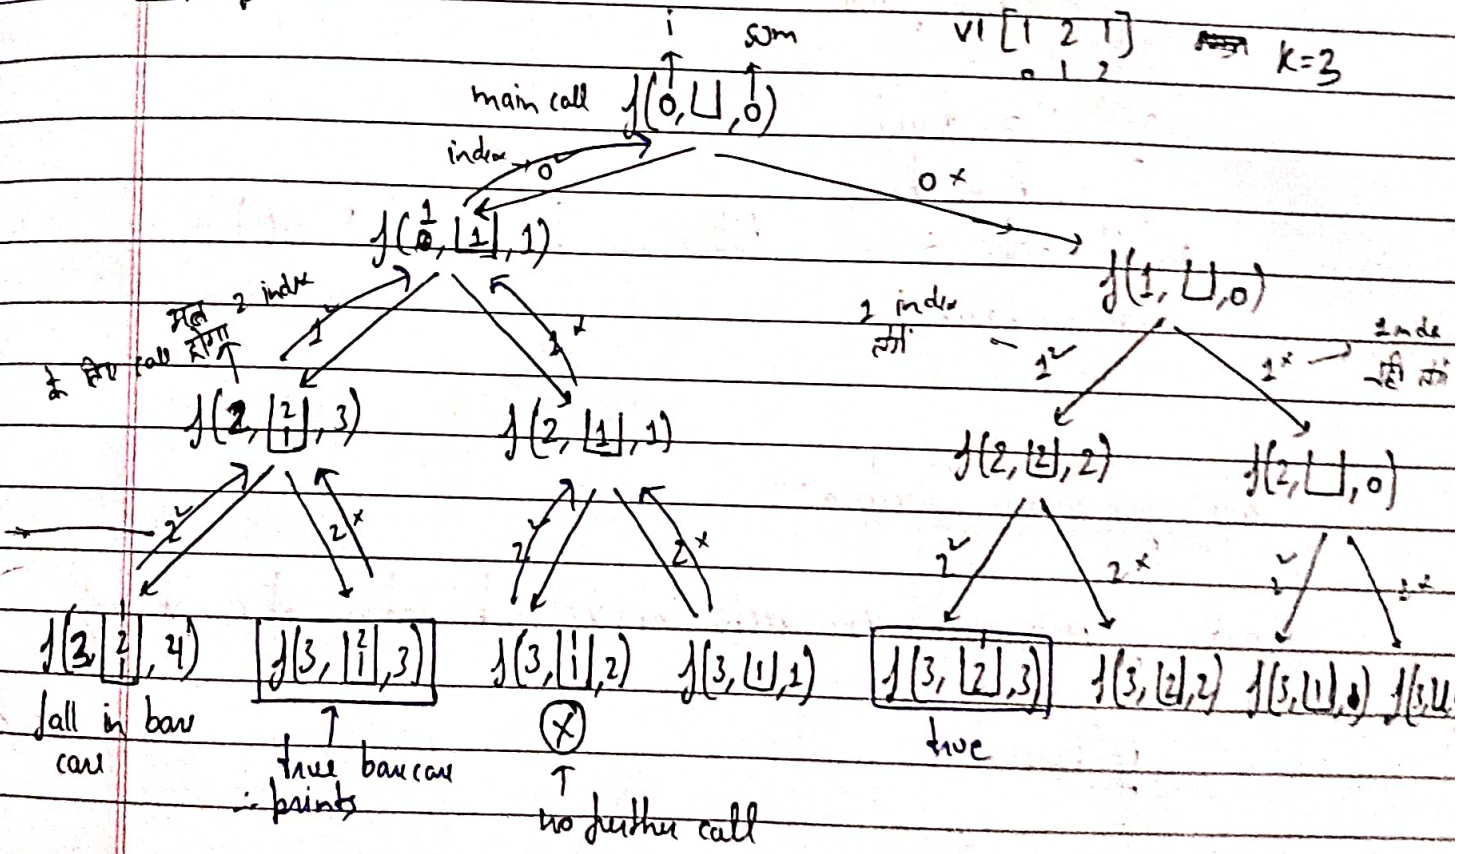 i sum v1 [1 2 1] K=3
0 1 2
main call f(0, ⊔, 0)
index → 0✓ 0 ×
f(1, |1|, 1) f(1, ⊔, 0)
2 index 1✓ 1 × 1 index 1✓ 1 ×
होगा
call
f(2, |2 1|, 3) f(2, |1|, 1) f(2, |2|, 2) f(2, ⊔, 0)
2✓ 2 × 2✓ 2 × 2✓ 2 ×
f(3, |1 2 1|, 4) f(3, |2 1|, 3) f(3, |1 1|, 2) f(3, |1|, 1) f(3, |1 2|, 3) f(3, |2|, 2) f(3, |1|, f(3, ⊔
fall in base case true base case ∴ prints × no further call true